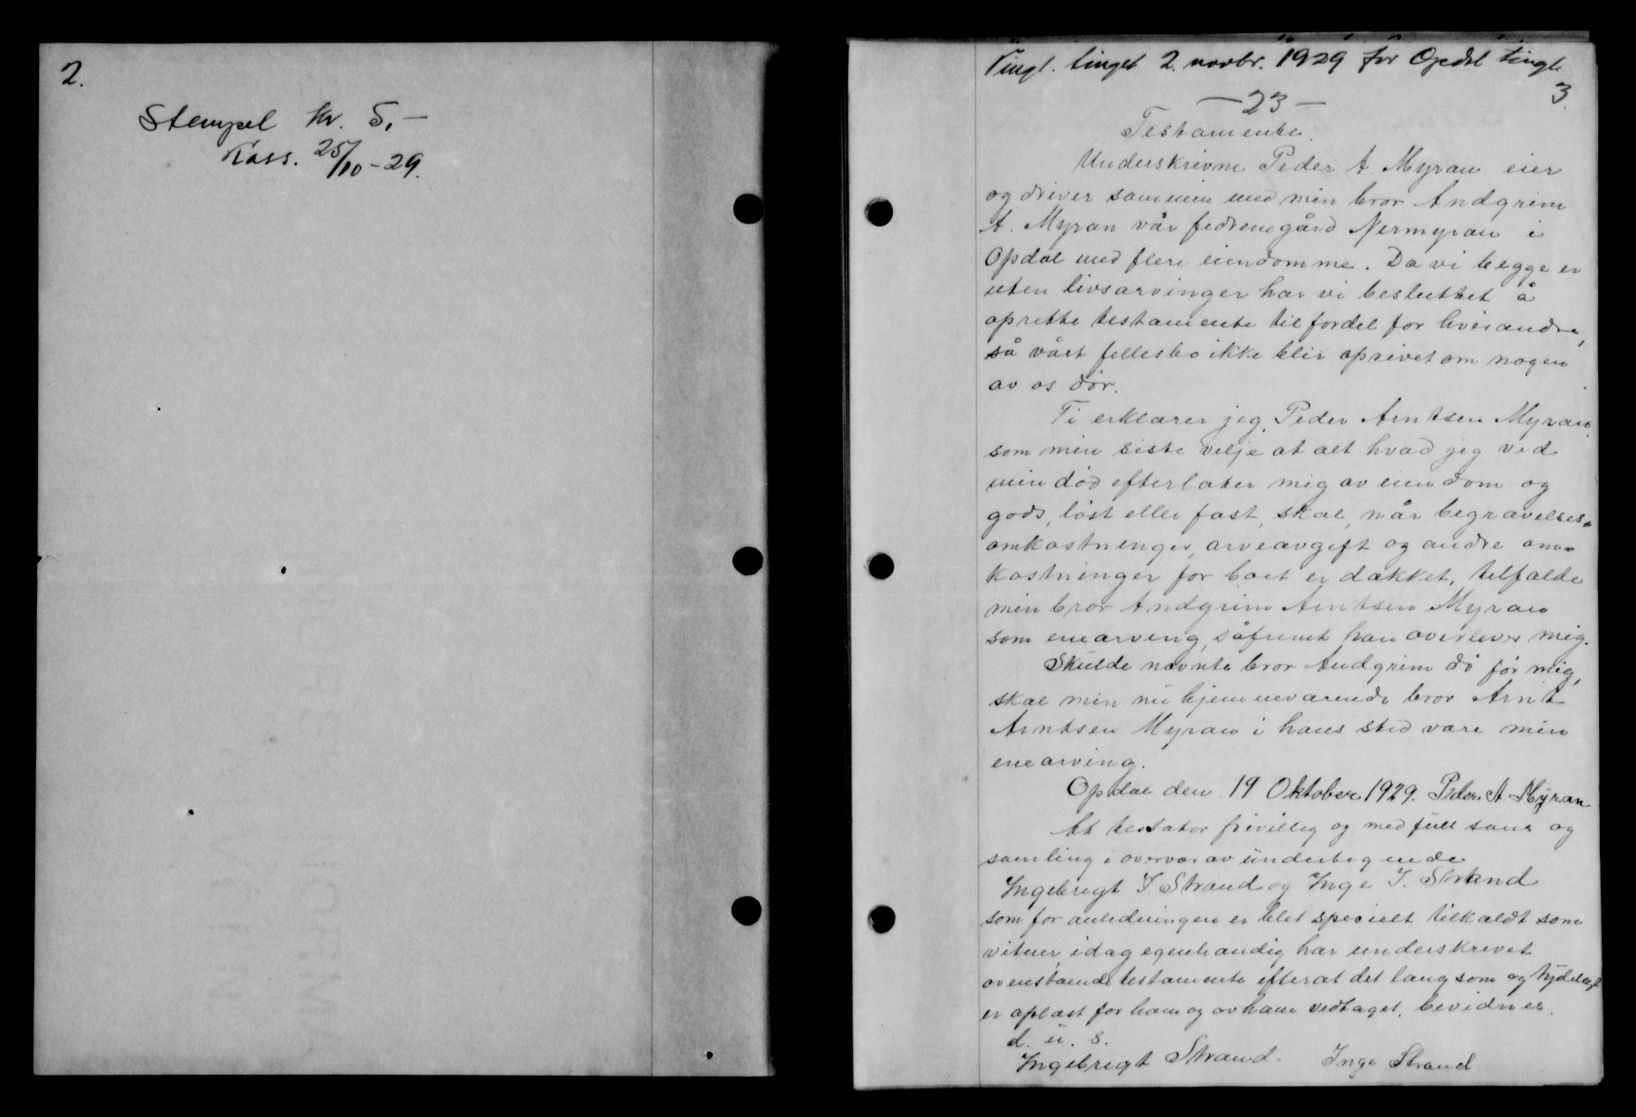 2.
Stempel kr. 5,-
Kass. 25/10-29.
Tingl. tinget 2. novbr. 1929 for Opdal tingl.
3.
-23-
Testamente.
Underskrevne Peder A. Myran eier
og driver sammen med min bror Andgrim
A. Myran vår fedrenegård Nermyran i
Opdal med flere eiendomme. Da vi begge er
uten livsarvinger har vi besluttet å
oprette testamente til fordel for hverandre,
så vårt fellesbo ikke blir oprivet om nogen
av os dør.
Ti erklærer jeg, Peder Arntsen Myran
som min siste vilje at alt hvad jeg ved
min død efterlater mig av eiendom og
gods, løst eller fast, skal, når begravelses-
omkostninger, arveavgift og andre om-
kostninger for boet er dækket, tilfalde
min bror Andgrim Arntsen Myran
som enearving, såfremt han overlever mig.
Skulde nævnte bror Andgrim dø før mig,
skal min nu hjemmeværende bror Arnt
Arntsen Myran i hans sted være min
enearving.
Opdal den 19 Oktober 1929. Peder A Myran
At testator frivillig og med full sans og
samling i overvær av undertegnede
Ingebrigt I. Strand og Inge I. Strand
som for anledningen er blet specielt tilkaldt som
vitner, idag egenhændig har underskrevet
ovenstående testamente efterat det langsom og tydelig
er oplæst for ham og av ham vedtaget, bevidnes.
d. u. s.
Ingebrigt Strand. Inge Strand